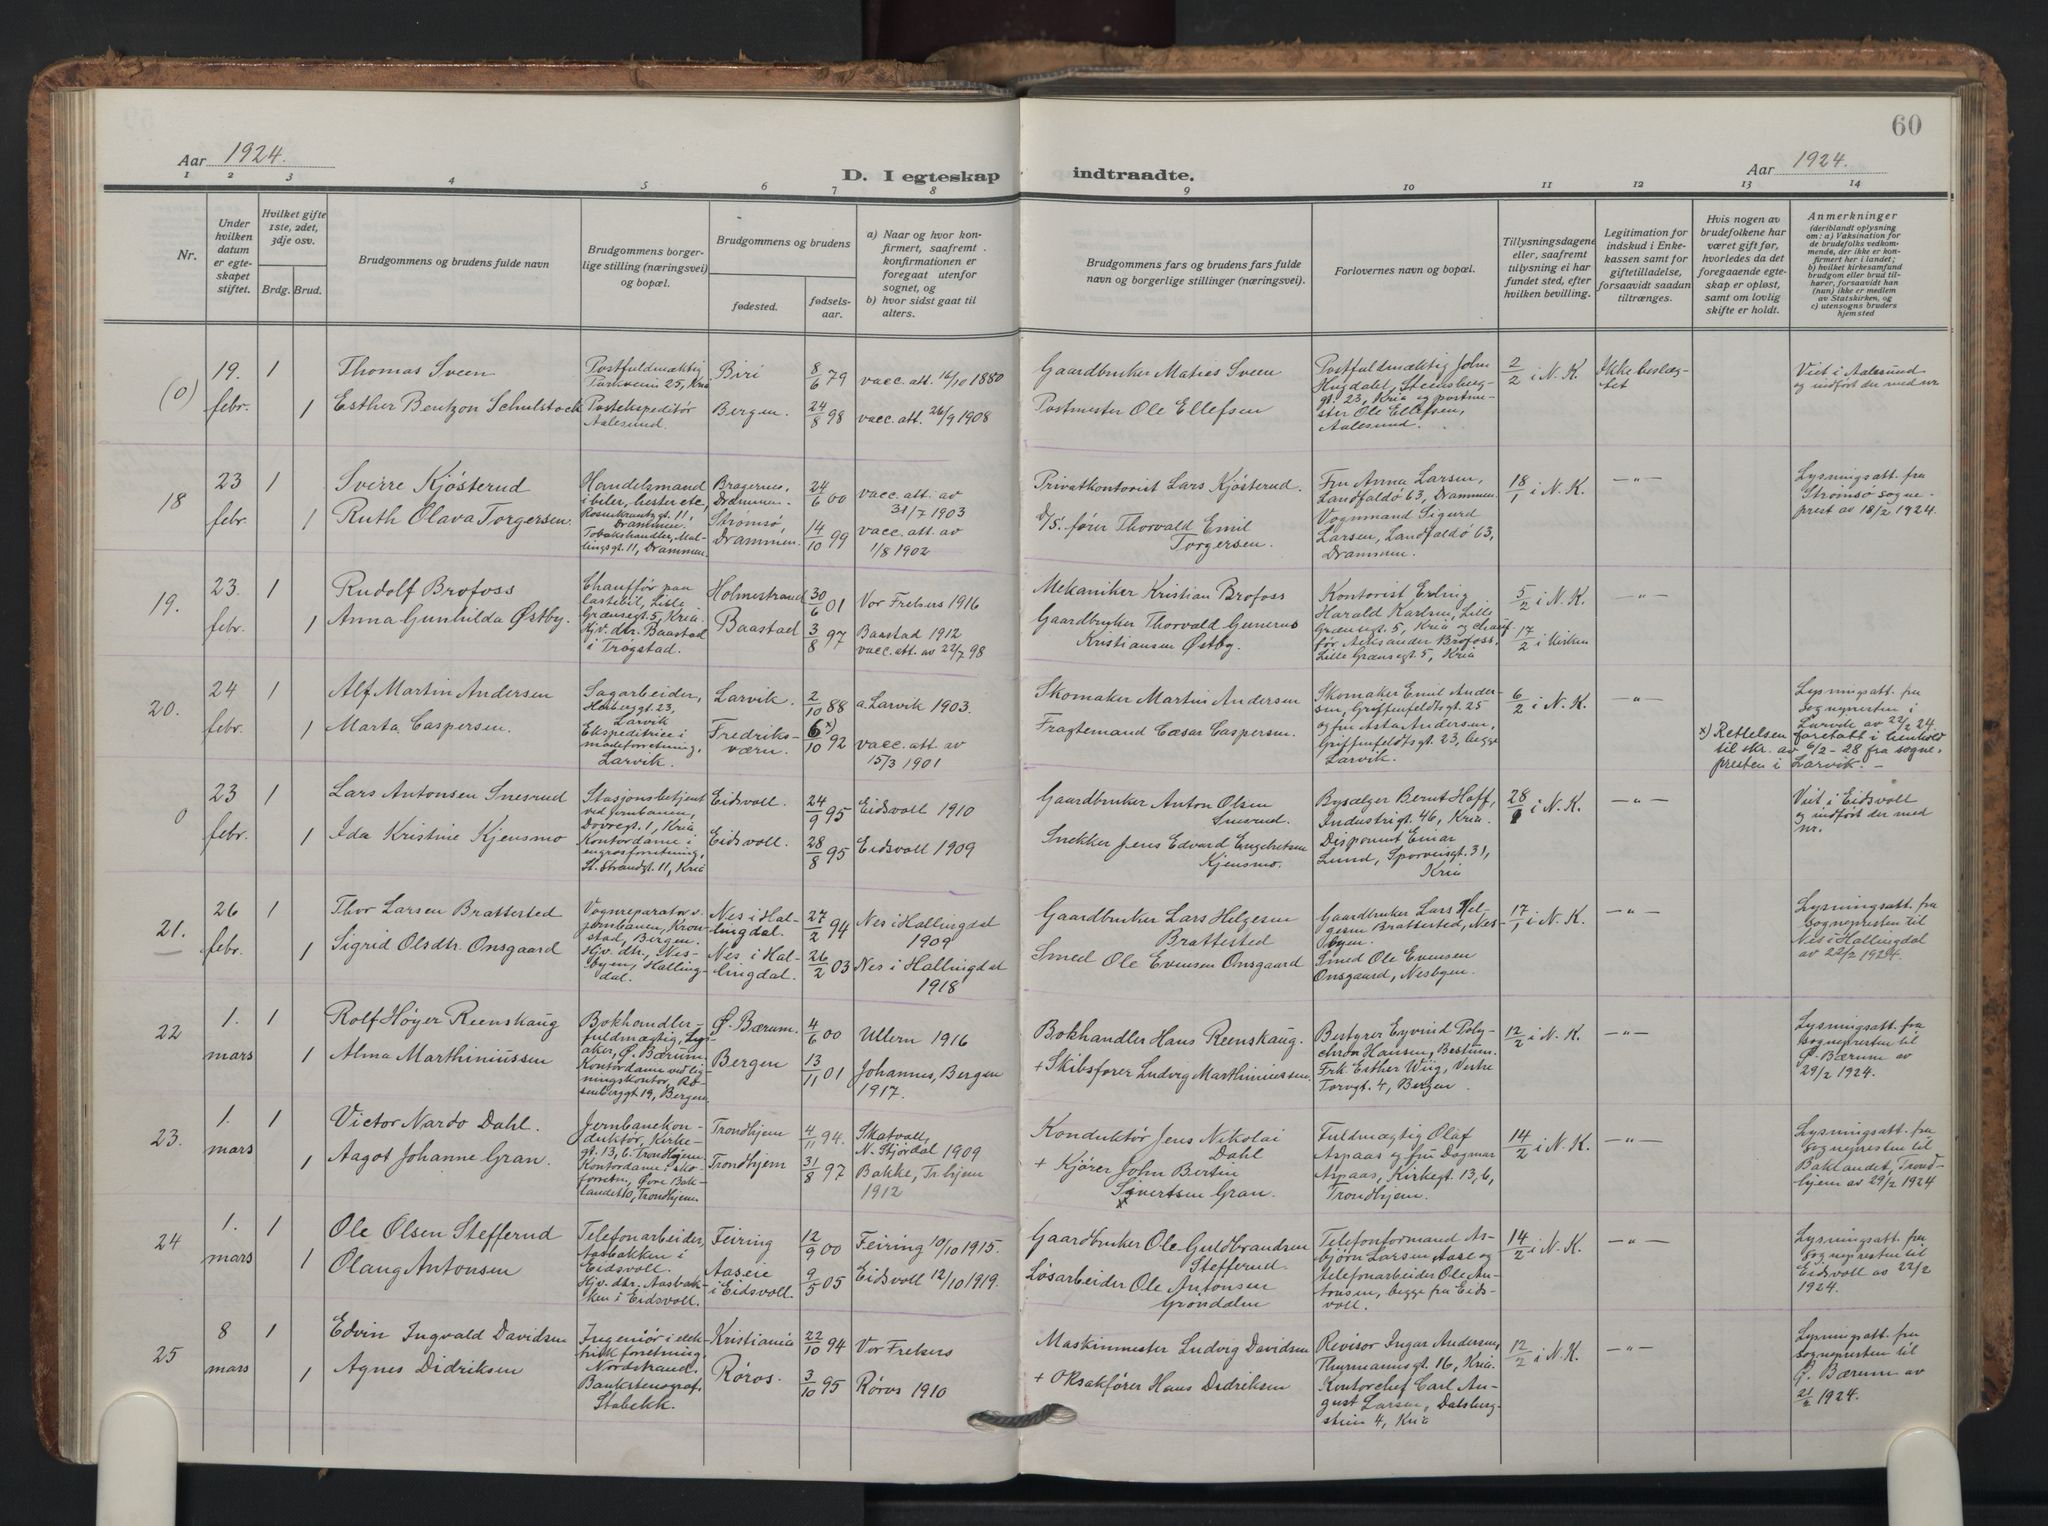 60
Aar 1924.
Aar 1924.
D. I egteskap indtraadte.
1 2 3 4 5 6 7 8 9 10 11 12 13 14
Nr.
Under hvilken datum er egteskapet stiftet.
Hvilket gifte 1ste, 2det, 3dje osv.
Brdg. Brud.
Brudgommens og brudens fulde navn
Brudgommens borgerlige stilling (næringsvei) og bopæl.
Brudgommens og brudens
fødested.
fødselsaar.
a) Naar og hvor konfirmert, saafremt konfirmationen er foregaat utenfor sognet, og
b) hvor sidst gaat til alters.
Brudgommens fars og brudens fars fulde navn og borgerlige stillinger (næringsvei).
Forlovernes navn og bopæl.
Tillysningsdagene eller, saafremt tillysning ei har fundet sted, efter hvilken bevilling.
Legitimation for indskud i Enkekassen samt for giftetilladelse, forsaavidt saadan tiltrænges.
Hvis nogen av brudefolkene har været gift før, hvorledes da det foregaaende egteskap er opløst, samt om lovlig skifte er holdt.
Anmerkninger (deriblandt oplysning om: a) Vaksination for de brudefolks vedkommende, der ikke er konfirmert her i landet; b) hvilket kirkesamfund brudgom eller brud tilhører, forsaavidt han (hun) ikke er medlem av Statskirken, og c) utensogns bruders hjemsted
(0)
19. febr.
1
Thomas Sveen
Postfuldmægtig
Parkveien 25, Kria
Biri
8/6 79
vacc. att. 16/10 1880
Gaardbruker Maties Sveen
1
Esther Bentzon Schulstock
Postekspeditør
Aalesund.
Bergen.
24/8 98
vacc. att. 26/9 1908
Postmester Ole Ellefsen
Postfuldmægtig John
Hugdal, Steensberg-
gt. 23, Kria og postme-
ster Ole Ellefsen,
Aalesund.
2/2 i N. K.
Ikke beslæg-
tet
Viet i Aalesund
og indført der med nr.
18
23 febr.
1
Sverre Kjøsterud
Handelsmand
i biler, hester etc,
Rosenkrantzgt. 11,
Drammen.
Bragernes,
Drammen.
24/6 00
vacc. att. av
31/7 1903
Privatkontorist Lars Kjøsterud.
1
Ruth Olava Torgersen.
Tobakshandler, Mal-
lingsgt. 11, Drammen.
Strømsø,
Drammen.
14/10 99
vacc. att. av
1/8 1902
D/S. fører Thorvald Emil
Torgersen.
Fru Anna Larsen,
Landfaldö 63, Drammen.
Vognmand Sigurd
Larsen, Landfaldö 63,
Drammen.
18/1 i N. K.
—"—
Lysningsatt. fra
Strømsø sogne-
prest av 18/2 1924.
19.
23. febr.
1
Rudolf Brofoss
Chauffør paa
lastebil, Lille
Grænsegt. 5, Kria.
Holmestrand
30/6 01
Vor Frelsers 1916
Mekaniker Kristian Brofoss
1
Anna Gunhilda Østby.
Hjv. dtr. Baastad
i Trøgstad.
Baastad
3/8 97
Baastad 1912
vacc. att. av 22/7 98
Gaardbruker Thorvald Gunerus
Kristiansen Østby.
Kontorist Erling
Harald Karlsen, Lille
Grænsegt. 5, Kria og chauf-
før Aleksander Brofoss,
Lille Grænsegt. 5, Kria
5/2 i N. K.
17/2 i Kirken
—"—
20.
24 febr.
1
Alf Martin Andersen
Sagarbeider,
Herbergt. 23,
Larvik
Larvik.
2/10 88
a. Larvik 1903.
Skomaker Martin Andersen
1
Marta Caspersen.
Ekspeditrice i
moteforretning,
Larvik.
Fredriks-
værn.
6x)/10 92
vacc. att. av
15/3 1901
Fragtemand Cæsar Caspersen.
Skomaker Emil Ander-
sen, Griffenfeldtsgt. 25
og fru Asta Andersen,
Griffenfeldtsgt. 23, begge
Larvik.
6/2 i N. K.
—"—
Lysningsatt. fra
Sognepresten i
Larvik av 22/2 24.
x) Rettelsen foretatt i henhold
til skr. av 6/2 - 28 fra sogne-
presten i Larvik. -
0
23 febr.
1
Lars Antonsen Snesrud
Stasjonsbetjent
ved Jernbanen,
Dovregt. 1, Kria
Eidsvoll.
24/9 95
Eidsvoll 1910
Gaardbruker Anton Olsen
Snesrud.
1
Ida Kristine Kjensmo
Kontordame i
engrosforretning,
St. Strandgt. 11, Kria
Eidsvoll.
28/8 95
Eidsvoll 1909
Snekker Jens Edvard Engebretsen
Kjensmo.
Bysælger Bernt Hoff,
Industrigt. 46, Kria.
Disponent Einar
Lund, Sporveisgt. 31,
Kria
28/1 i N. K.
—"—
Viet i Eidsvoll
og indført der med
nr.
21.
26 febr.
1
Thor Larsen Brattested
Vognreparatør v.
jernbanen, Kron-
stad, Bergen.
Nes i Hal-
lingdal.
27/2 94
Nes i Hallingdal
1909
Gaardbruker Lars Helgesen
Brattested
1
Sigrid Olsdtr. Onsgaard
Hjv. dtr., Nes-
byen, Halling-
dal.
Nes i Hal-
lingdal.
26/2 03
Nes i Hallingdal
1918
Smed Ole Evensen Onsgaard
Gaardbruker Lars Hel-
gesen Brattested, Nes-
byen.
Smed Ole Evensen
Onsgaard, Nesbyen.
17/1 i N. K.
—"—
Lysningsatt. fra
Sognepresten til
Nes i Hallingdal
av 22/2 1924.
22
1. mars
1
Rolf Høyer Reenskaug
Bokhandler-
fuldmægtig, Lys-
aker, Ø. Bærum.
Ø. Bærum.
4/6 00
Ullern 1916
Bokhandler Hans Reenskaug.
1
Alma Marthiniussen
Kontordame ved lig-
ningskontor, Ro-
senberggt 19, Bergen.
Bergen
13/11 01
Johannes, Bergen
1917.
+ Skibsfører Ludvig Marthiniussen.
Bestyrer Eyvind Poly-
chron Hansen, Bestum.
Frk. Esther Wiig, Vestre
Torvgt. 4, Bergen
12/2 i N. K.
—"—
Lysningsatt. fra
sognepresten til
Ø. Bærum av
29/2 1924.
23.
1. mars
1
Victor Nardo Dahl.
Jernbanekon-
duktør, Kirke-
gt. 13, 6. Trondhjem.
Trondhjem
4/11 94.
Skatvall,
N. Stjørdal 1909
Konduktør Jens Nikolai
Dahl
1
Aagot Johanne Gran.
Kontordame i sko-
forretn., Øvre Bak-
landet 10, Trondhjem.
Trondhjem
31/8 97
Bakke, Tr.hjem
1912
+ Kjører John Bersin
Sivertsen Gran.
x
Fuldmægtig Olaf
Aspaas og fru Dagmar
Aspaas, Kirkegt. 13, 6,
Trondhjem.
14/2 i N. K.
—"—
Lysningsatt. fra
Sognepresten til
Baklandet, Trond-
hjem av 29/2 1924
24
1. mars
1
Ole Olsen Stefferud
Telefonarbeider,
Aasbakken i
Eidsvoll.
Feiring
12/9 00
Feiring 10/10 1915.
Gaardbruker Ole Guldbrandsen
Stefferud.
1
Olaug Antonsen
Hjv. dtr. Aasbak-
ken i Eidsvoll.
Aaseie
i Eidsvoll.
9/5 05
Eidsvoll 12/10 1919.
Løsarbeider Ole Antonsen
Grøndalen
Telefonformand As-
bjørn Larsen Aase og
telefonarbeider Ole An-
tonsen, begge fra Eids-
voll.
14/2 i N. K.
—"—
Lysningsatt. fra
Sognepresten til
Eidsvoll av 22/2
1924.
25
8 mars
1
Edvin Ingvald Davidsen
Ingeniør i elek-
trisk forretning,
Nordstrand.
Kristiania
22/10 94
Vor Frelsers
Maskinmester Ludvig Davidsen
1
Agnes Didriksen
Bankstenograf,
Stabekk.
Røros.
3/10 95
Røros 1910
+ Oksakfører Hans Didriksen
Revisor Ingar Andersen,
Thurmannsgt. 16, Kria.
Kontorchef Carl Au-
gust Larsen, Dalsberg-
stien 4, Kria
12/2 i N. K.
—"—
Lysningsatt. fra
sognepresten til
Ø. Bærum av
21/2 1924.